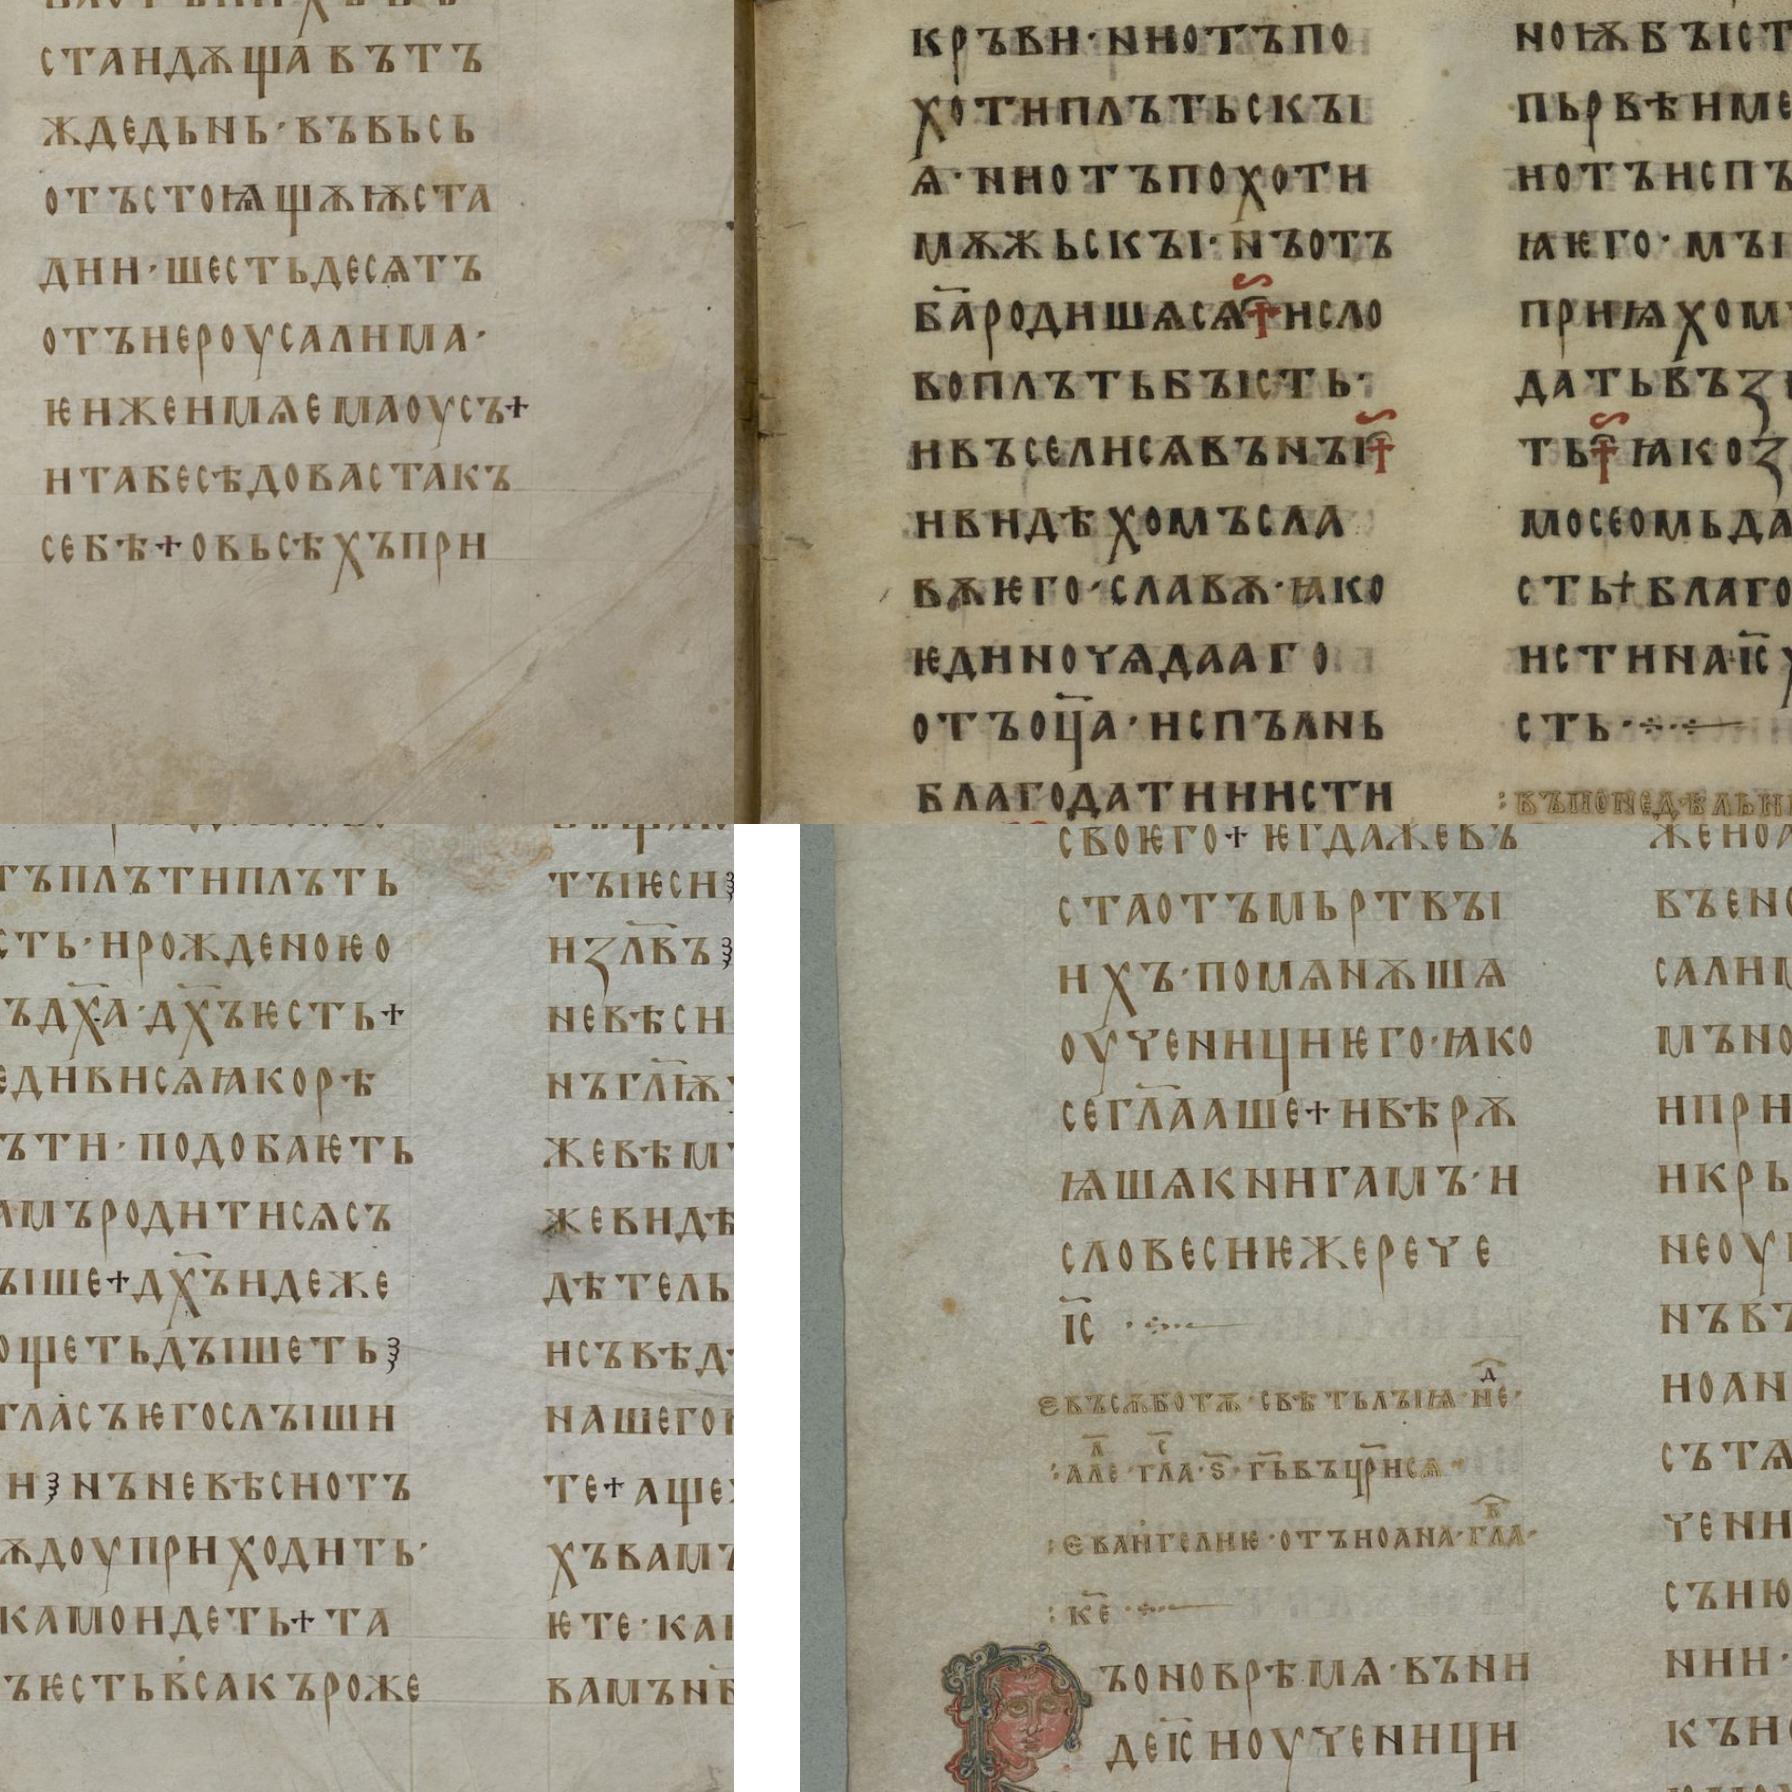 СТАНДѪЩА В ЪТЪ
ЖДЕДЬНЬ·ВЪВЬСЬ
ОТЪСТОꙖЩѪѬСТА
ДИИ·ШЕСТЬДЕСѦТЪ
ОТЪИЕРОУСАЛИМА·
ѤИЖЕИМѦЕМАОУСЪ+
ИТАБЕСѢДОВАСТАКЪ
СЕБѢ+ОВЬСѢХЪПРИ
КРЪВИ·НИОТЪПО
ХОТИПЛЪТЬСКЪІ
Ѧ·НИОТЪПОХОТИ
МѪЖЬСКЪІ·НЪОТЪ
Б҃АРОДИШѦСѦ+ИСЛО
ВОПЛЪТЬБЪІСТЬ·
ИВЪСЕЛИСѦВЪНЪІ+
ИВИДѢХОМЪСЛА
ВѪѤГО·СЛАВѪ·ꙖКО
ѤДИНОЧѦДААГО
ОТЪОЦ҃А·ИСПЪЛНЬ
БЛАГОДАТИИИСТИ
НОѬБЪІСТ
ПЬРВѢИМЕ
ИОТЪИСПЪ
ꙖѤГО·МЪІ
ПРИꙖХОМ
ДАТЬВЪЗ
ТЬ+ꙖКОЗ
МОСЕОМЬДА
СТЬ+БЛАГО
ИСТИНАІ҃СХ
СТЬ·
ВЪПОНЕДѢЛЬНИ
ТЪПЛЪТИПЛЪТЬ
СТЬ·ИРОЖДЕНОѤО
ЪДХ҃А·ДХ҃ЪѤСТЬ+
ЕДИВИСѦꙖКОРѢ
ЪТИ·ПОДОБАѤТЬ
АМЪРОДИТИСѦСЪ
ЪІШЕ+ДХ҃ЪИДЕЖЕ
ОЩЕТЬДЪІШЕТЬ
ГЛАСЪѤГОСЛЪІШИ
И НЪНЕВѢСИОТЪ
ѪДОУПРИХОДИТЬ·
КАМОИДЕТЬ+ТА
ЪѤСТЬВСАКЪРОЖЕ
ТЪІѤСИ
ИЗЛ҃ВЪ
НЕВѢСИ
НЪГЛ҃Ѭ
ЖЕВѢМ
ЖЕВИДѢ
ДѢТЕЛЬ
ИСЪВѢД
НАШЕГО
ТЕ+АЩЕ
ХЪВАМЪ
ѤТЕ·КА
ВАМЪН
СВОѤГО+ѤГДАЖЕВЪ
СТАОТЪМЬРТВЪІ
ИХЪ·ПОМѦНѪШѦ
ОУЧЕНИЦИѤГО·ꙖКО
СЕГЛ҃ААШЕ+ИВѢРѪ
ꙖШѦКНИГАМЪ·И
СЛОВЕСИѤЖЕРЕЧЕ
ІС҃
ЄВЪСѪБОТѪ·СВѢТЬЛЪІꙖ·НЕД·
АЛЕЛ·ГЛАС·Ѕ҃·Г҃ЬВЪЦР҃ИСѦ
ЄВАНГЕЛИѤ·ОТЪИОАНА·ГЛАВ·
К҃Е·
ЪОНОВРѢМѦ·ВЪНИ
ДЕІ҃СИОУЧЕНИЦИ
ЖЕНОА
ВЪЕНО
САЛИМ
МЪНО
ИПРИ
ИКРЬ
НЕОУ
НЪВЪ
ИОАН
СЪТѦ
ЧЕНИ
СЪНЮ
НИИ·
КЪНО